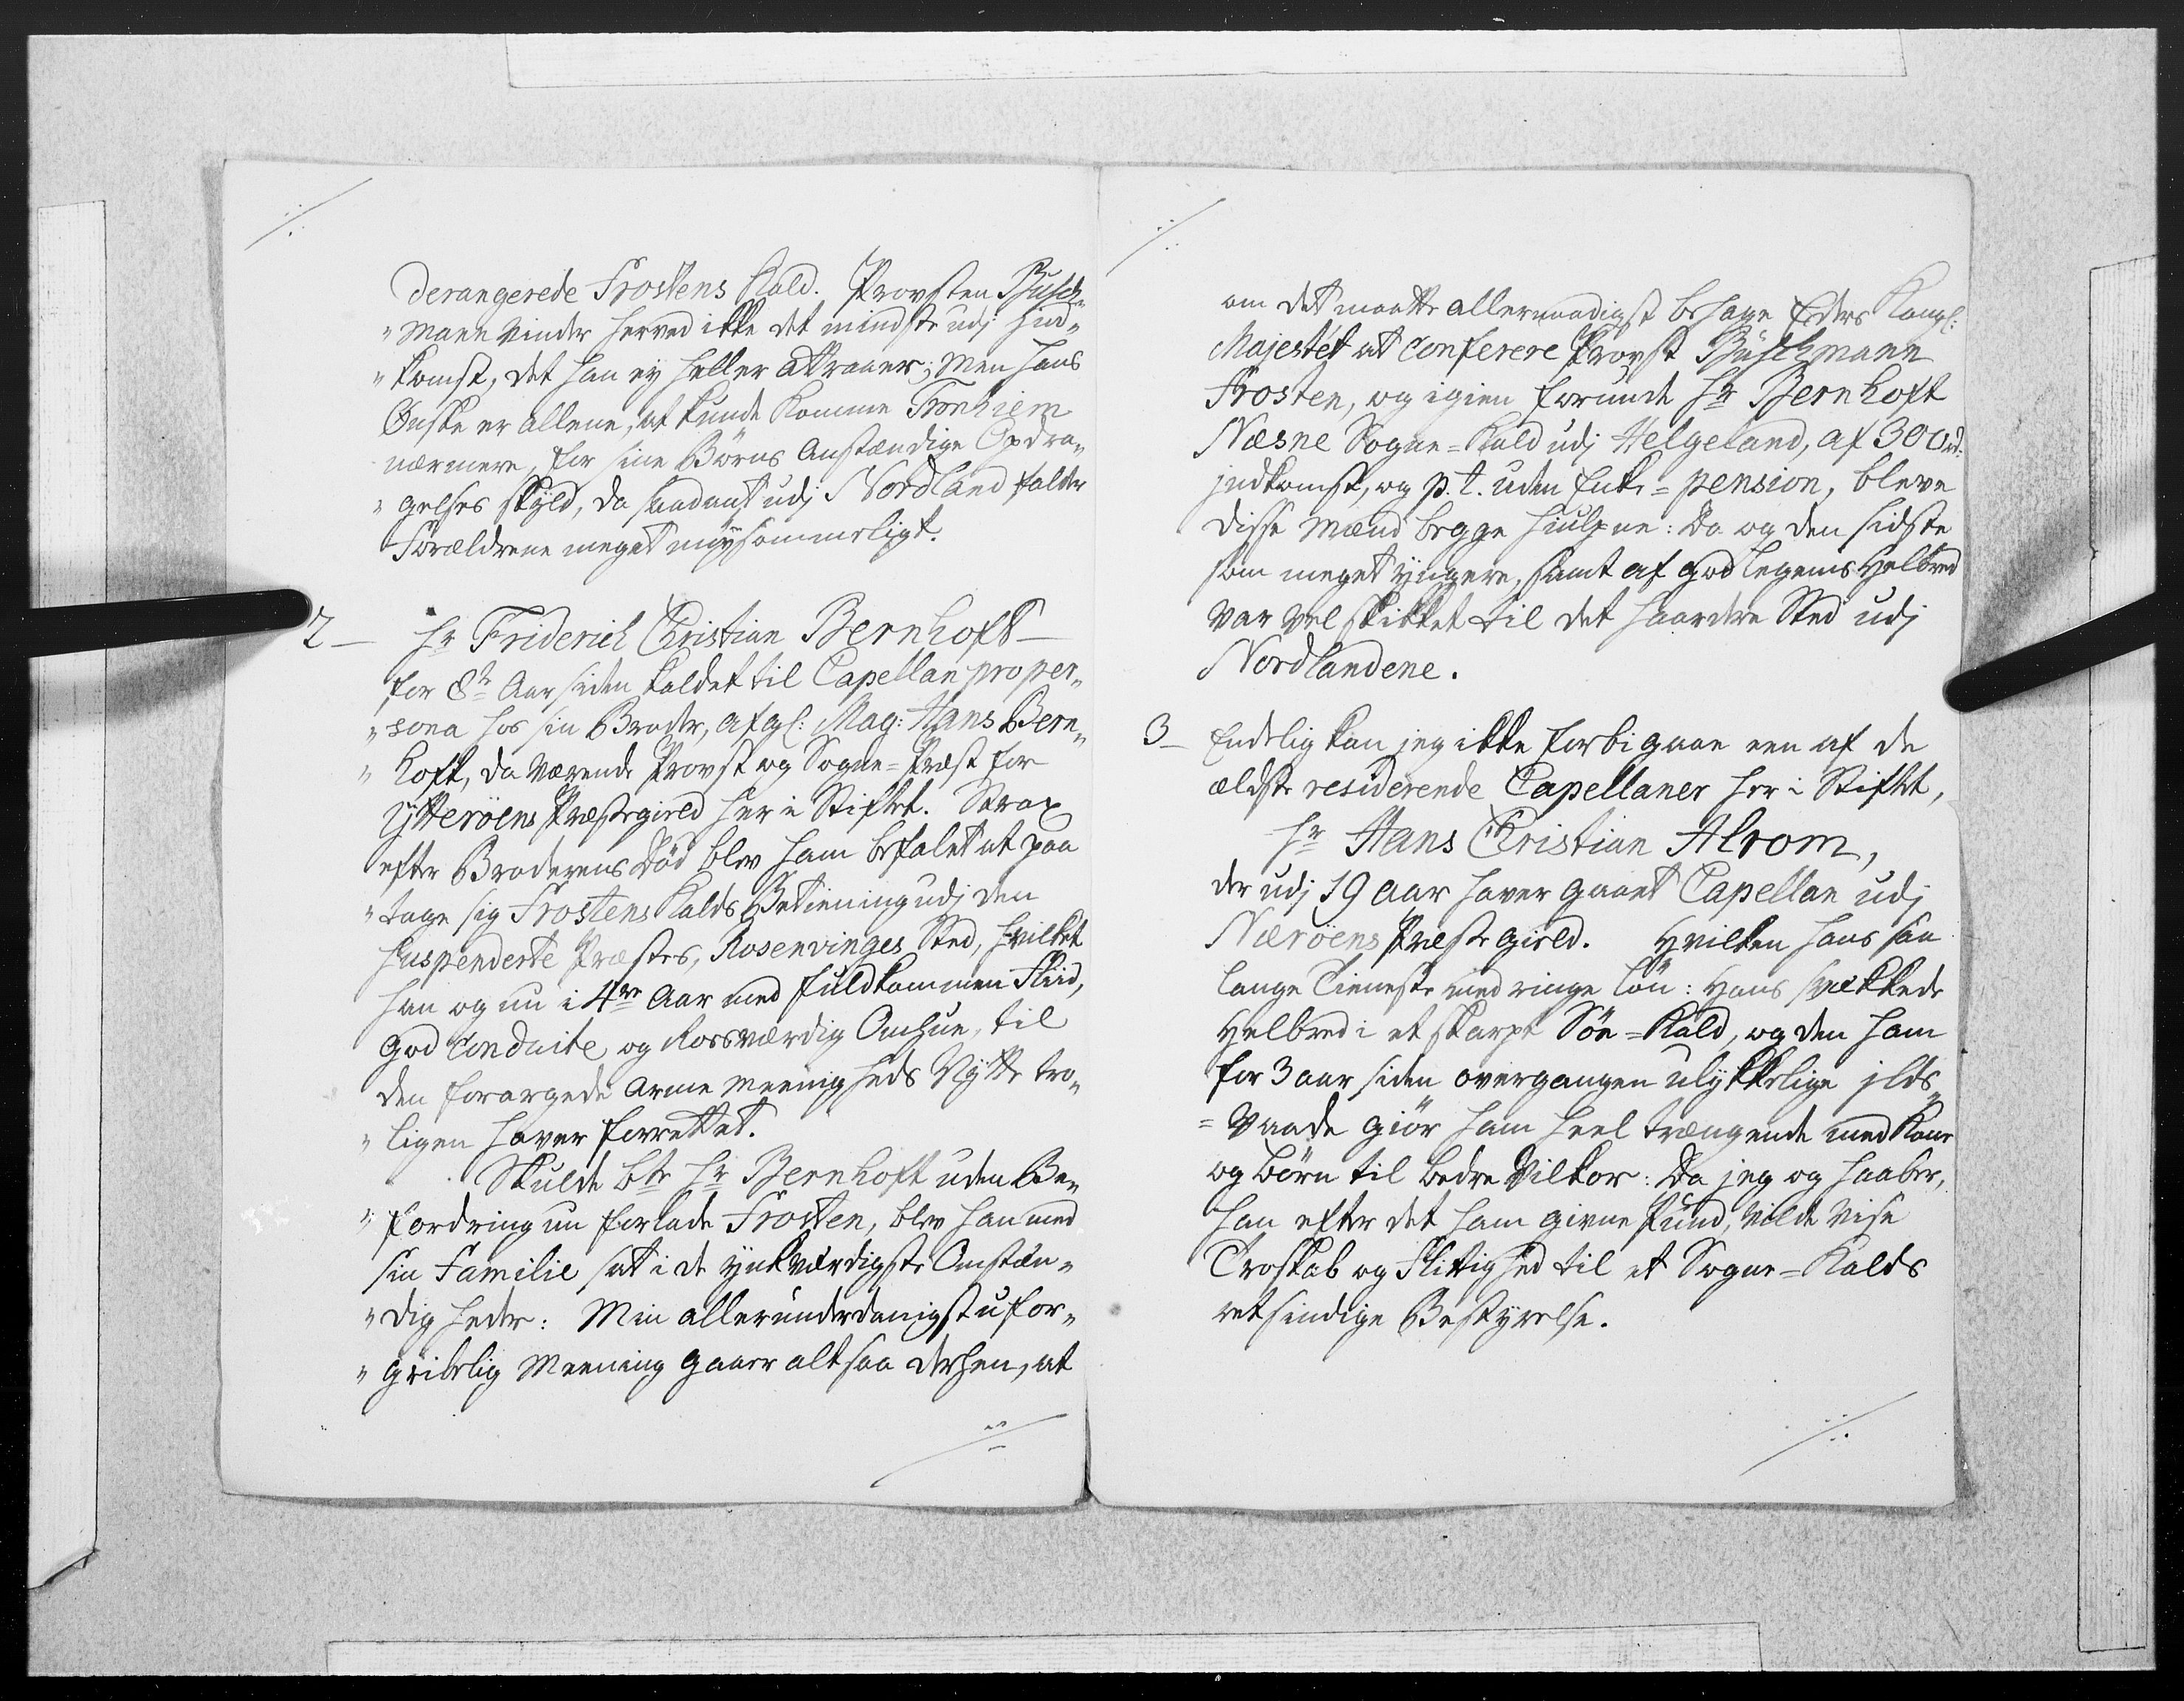 derangerede Frostens Kald. Provsten Busch„
„mann vinder herved ikke det mindste udj Ind„
„komst, det han ey heller attraaer; Men hans
Ønske er allene, at kunde komme Tronhiem
nærmere, for sine Børns anstændige Opdra„
„gelses skyld, da saadant udj Nordland falder
Forældrene meget møysommeligt.
2 – Hr Friderich Christian Bernhoft –
for 8te Aar siden kaldet til Capellan pro per„
„sona hos sin Broder, afgl: Mag: Hans Bern„
„hoft, da værende Provst og Sogne=Præst for
Ytterøens Præstegield her i Stiftet. Strax
efter Broderens Død blev ham befalet at paa
„tage sig Frostens Kalds Betiening udj den
suspenderte Præstes, Rosenvinges Sted, hvilket
han og nu i 4re Aar med fuldkommen Fliid,
god Conduite og Rosværdig Omhue, til
den forargede arme Meenigheds Nytte tro„
„ligen haver forrettet.
Skulde bte Hr Bernhoft uden Be„
„fordring nu forlade Frosten, blev han med
sin Familie sat i de ynkværdigste Omstæn„
„digheder: Min allerunderdanigst ufor„
„gribelig Meening gaaer altsaa derhen, at
om det maatte allernaadigst behage Eders Kongl:
Majestét at conferere Provst Buschmann
Frosten, og igien forunde Hr Bernhoft
Næsne Sogne=Kald udj Helgeland, af 300 rd.
jndkomst, og p.t. uden Enke=pension, bleve
disse Mænd begge hiulpne: Da og den sidste
som meget yngere, samt af god Legems Helbred
var vel skikket til det haardere Sted udj
Nordlandene.
3 – Endelig kan jeg ikke forbigaae een af de
ældste residerende Capellaner her i Stiftet,
Hr Hans Christian Alrom,
der udj 19 aar haver gaaet Capellan udj
Nærøens Præstegield. Hvilken hans saa
lange Tieneste med ringe løn: Hans svækkede
Helbred i et skarpt Søe=Kald, og den ham
for 3 aar siden overgangen ulykkelige jlds„
=Vaade giør ham heel trængende med Kone
og børn til bedre Vilkor: Da jeg og haaber,
han efter det ham givne Pund, vilde vise
Troskab og Flittighed til et Sogne=Kalds
retsindige Bestyrelse.